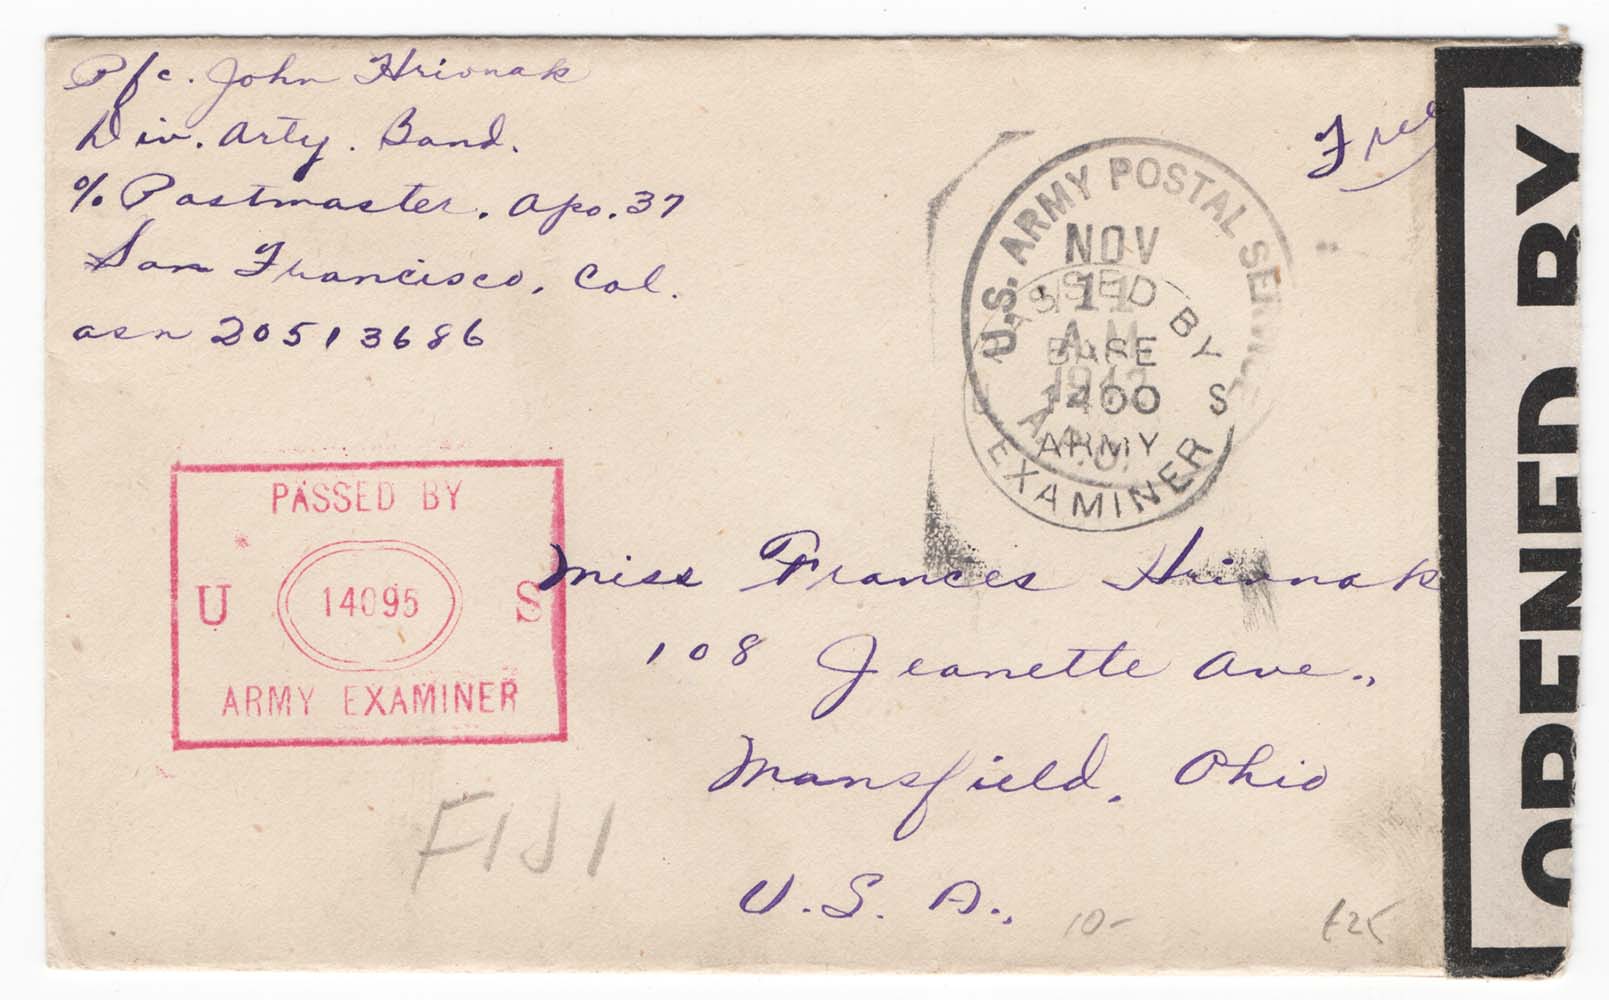 Pfc. John Hrivnak
Div. Arty. Band.
% Postmaster. Apo. 37
San Francisco, Cal.
asn 20513686
Free
U.S. ARMY POSTAL SERVICE
NOV
11
A.M.
1942
A.P.O.
PASSED BY
BASE
1400
ARMY
U S
EXAMINER
PASSED BY
U 14095 S
ARMY EXAMINER
Miss Frances Hrivnak
108 Jeanette Ave.,
Mansfield, Ohio
U. S. A.,
FIJI
10-
£25
OPENED BY